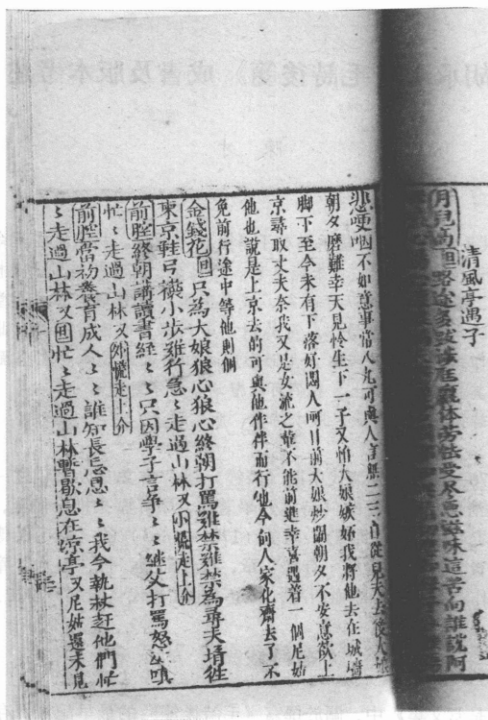 清風亭遇子
月兒高 旦 路途多跋涉 體勞怯受尽 滋味這苦向誰說阿
悲哽咽不如意事常八九可與人言無二三自從兒夫去後大娘
朝夕磨難幸天見怜生下一子又怕大娘嫉妬我將他去在城墻
脚下至今未有下落好悶人呵目前大娘炒鬧朝夕不安意欲上
京尋取丈夫奈我又是女流之輩不能前進幸喜遇着一個尼姑
他也說是上京去的可與他作伴而行他今向人家化齋去了不
免前行途中等他則個
金錢花 旦 只為大娘狼心狼心終朝打罵难禁难禁為尋夫壻徃
東京鞋弓襪小步难行急〻走過山林又 小慌走上介
前腔終朝講讀書經〻〻只因學子言爭〻〻継父打罵怒生嗔
忙〻走過山林又 外慌走上介
前腔當初養育成人〻〻誰知長忘恩〻〻我今執杖赶他們忙
〻走過山林又 旦 忙〻走過山林暫歇息在凉亭又尼姑還未見